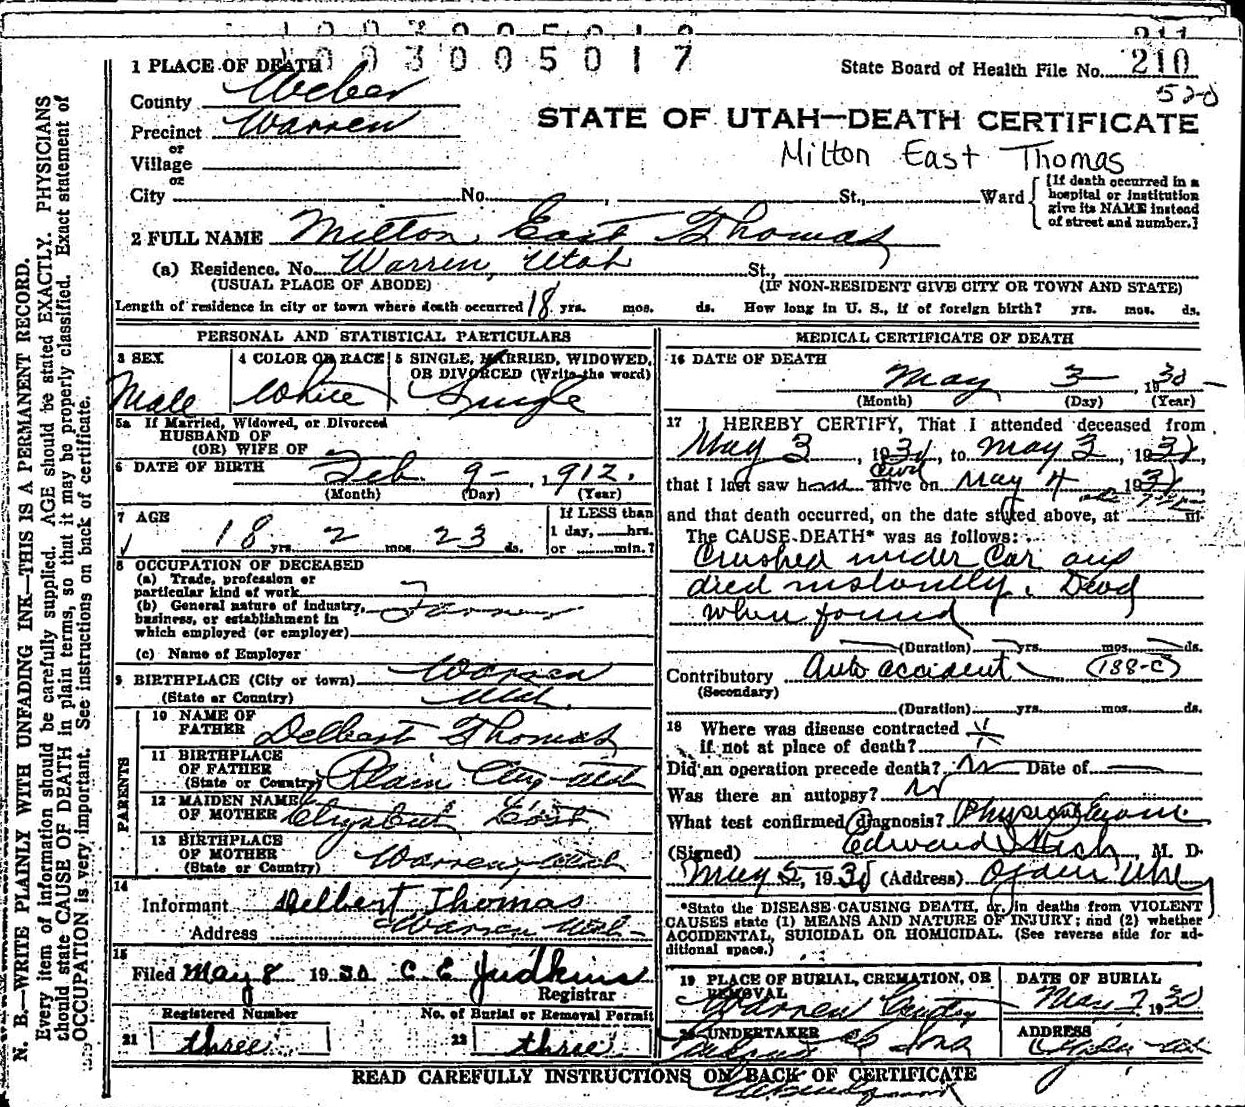 1003005017
211
1 PLACE OF DEATH
State Board of Health File No. 210
County Weber
520
Precinct Warren
STATE OF UTAH—DEATH CERTIFICATE
or
Village
Milton East Thomas
or
City No. , St., Ward [If death occurred in a hospital or institution give its NAME instead of street and number.]
2 FULL NAME Milton East Thomas
(a) Residence. No. Warren, Utah St.,
(USUAL PLACE OF ABODE) (IF NON-RESIDENT GIVE CITY OR TOWN AND STATE)
Length of residence in city or town where death occurred 18 yrs. mos. ds. How long in U. S., if of foreign birth? yrs. mos. ds.
PERSONAL AND STATISTICAL PARTICULARS
3 SEX 4 COLOR OR RACE 5 SINGLE, MARRIED, WIDOWED, OR DIVORCED (Write the word)
Male White Single
5a If Married, Widowed, or Divorced
HUSBAND OF
(OR) WIFE OF
6 DATE OF BIRTH Feb. 9- , 1912.
(Month) (Day) (Year)
7 AGE If LESS than
18 yrs. 2 mos. 23 ds. 1 day, hrs.
or min.?
8 OCCUPATION OF DECEASED
(a) Trade, profession or
particular kind of work
(b) General nature of industry,
business, or establishment in
which employed (or employer) Farmer
(c) Name of Employer
9 BIRTHPLACE (City or town) Warren
(State or Country) Utah.
PARENTS
10 NAME OF
FATHER Delbert Thomas
11 BIRTHPLACE
OF FATHER
(State or Country) Plain City Utah
12 MAIDEN NAME
OF MOTHER Elizabeth East
13 BIRTHPLACE
OF MOTHER
(State or Country) Warren, Utah
14
Informant Delbert Thomas
Address Warren Utah
15
Filed May 8 1930 C. E. Judkins
Registrar
Registered Number No. of Burial or Removal Permit
21 three 22 three
MEDICAL CERTIFICATE OF DEATH
16 DATE OF DEATH
May 3 , 1930
(Month) (Day) (Year)
17 I HEREBY CERTIFY, That I attended deceased from
May 3, 1930, to May 3, 1930,
that I last saw h alive on May 4 1930,
and that death occurred, on the date stated above, at m.
The CAUSE DEATH* was as follows:
Crushed under Car and
died instantly. Dead
when found
(Duration) yrs. mos. ds.
Contributory Auto accident (188-C)
(Secondary)
(Duration) yrs. mos. ds.
18 Where was disease contracted
if not at place of death?
Did an operation precede death? No Date of
Was there an autopsy? No
What test confirmed diagnosis? Physical Exam.
(Signed) Edward , M. D.
May 5, 1930 (Address) Ogden Utah
*State the DISEASE CAUSING DEATH, or, in deaths from VIOLENT
CAUSES state (1) MEANS AND NATURE OF INJURY; and (2) whether
ACCIDENTAL, SUICIDAL OR HOMICIDAL. (See reverse side for ad-
ditional space.)
19 PLACE OF BURIAL, CREMATION, OR REMOVAL DATE OF BURIAL
Warren Cemetery May 7 1930
20 UNDERTAKER ADDRESS
& Sons Ogden Utah
READ CAREFULLY INSTRUCTIONS ON BACK OF CERTIFICATE
N. B.—WRITE PLAINLY WITH UNFADING INK—THIS IS A PERMANENT RECORD.
Every item of information should be carefully supplied. AGE should be stated EXACTLY. PHYSICIANS
should state CAUSE OF DEATH in plain terms, so that it may be properly classified. Exact statement of
OCCUPATION is very important. See instructions on back of certificate.